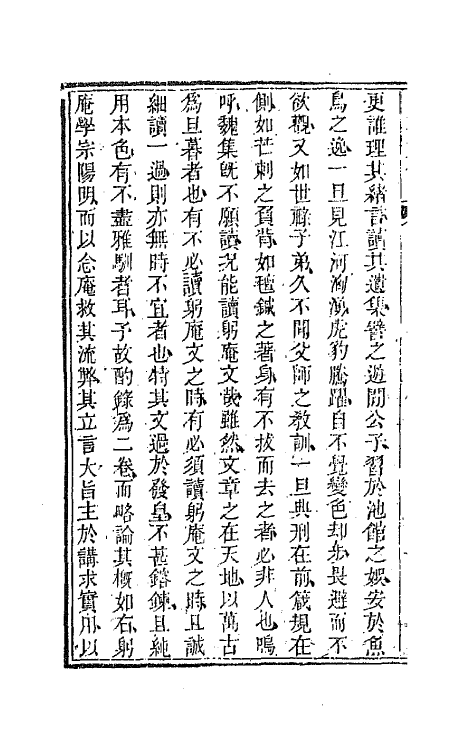 更誰理其緒言讀其遺集譬之遊閒公子習於池館之娛安於魚
鳥之逸一旦見江河洶湧虎豹騰躍自不覺變色却步長避而不
欲觀又如世祿子弟久不聞父師之教訓一旦典刑在前箴規在
側如芒刺之負背如氊鍼之著身有不拔而去之者必非人也嗚
呼魏集旣不願讀況能讀躬庵文哉雖然文章之在天地以萬古
爲旦暮者也有不必讀躬庵文之時有必須讀躬庵文之時且誠
細讀一過則亦無時不宜者也特其文過於發皇不甚鎔鍊且純
用本色有不盡雅馴者耳予故酌錄爲二卷而略論其槪如右躬
庵學宗陽明而以念庵救其流弊其立言大旨主於講求實用以